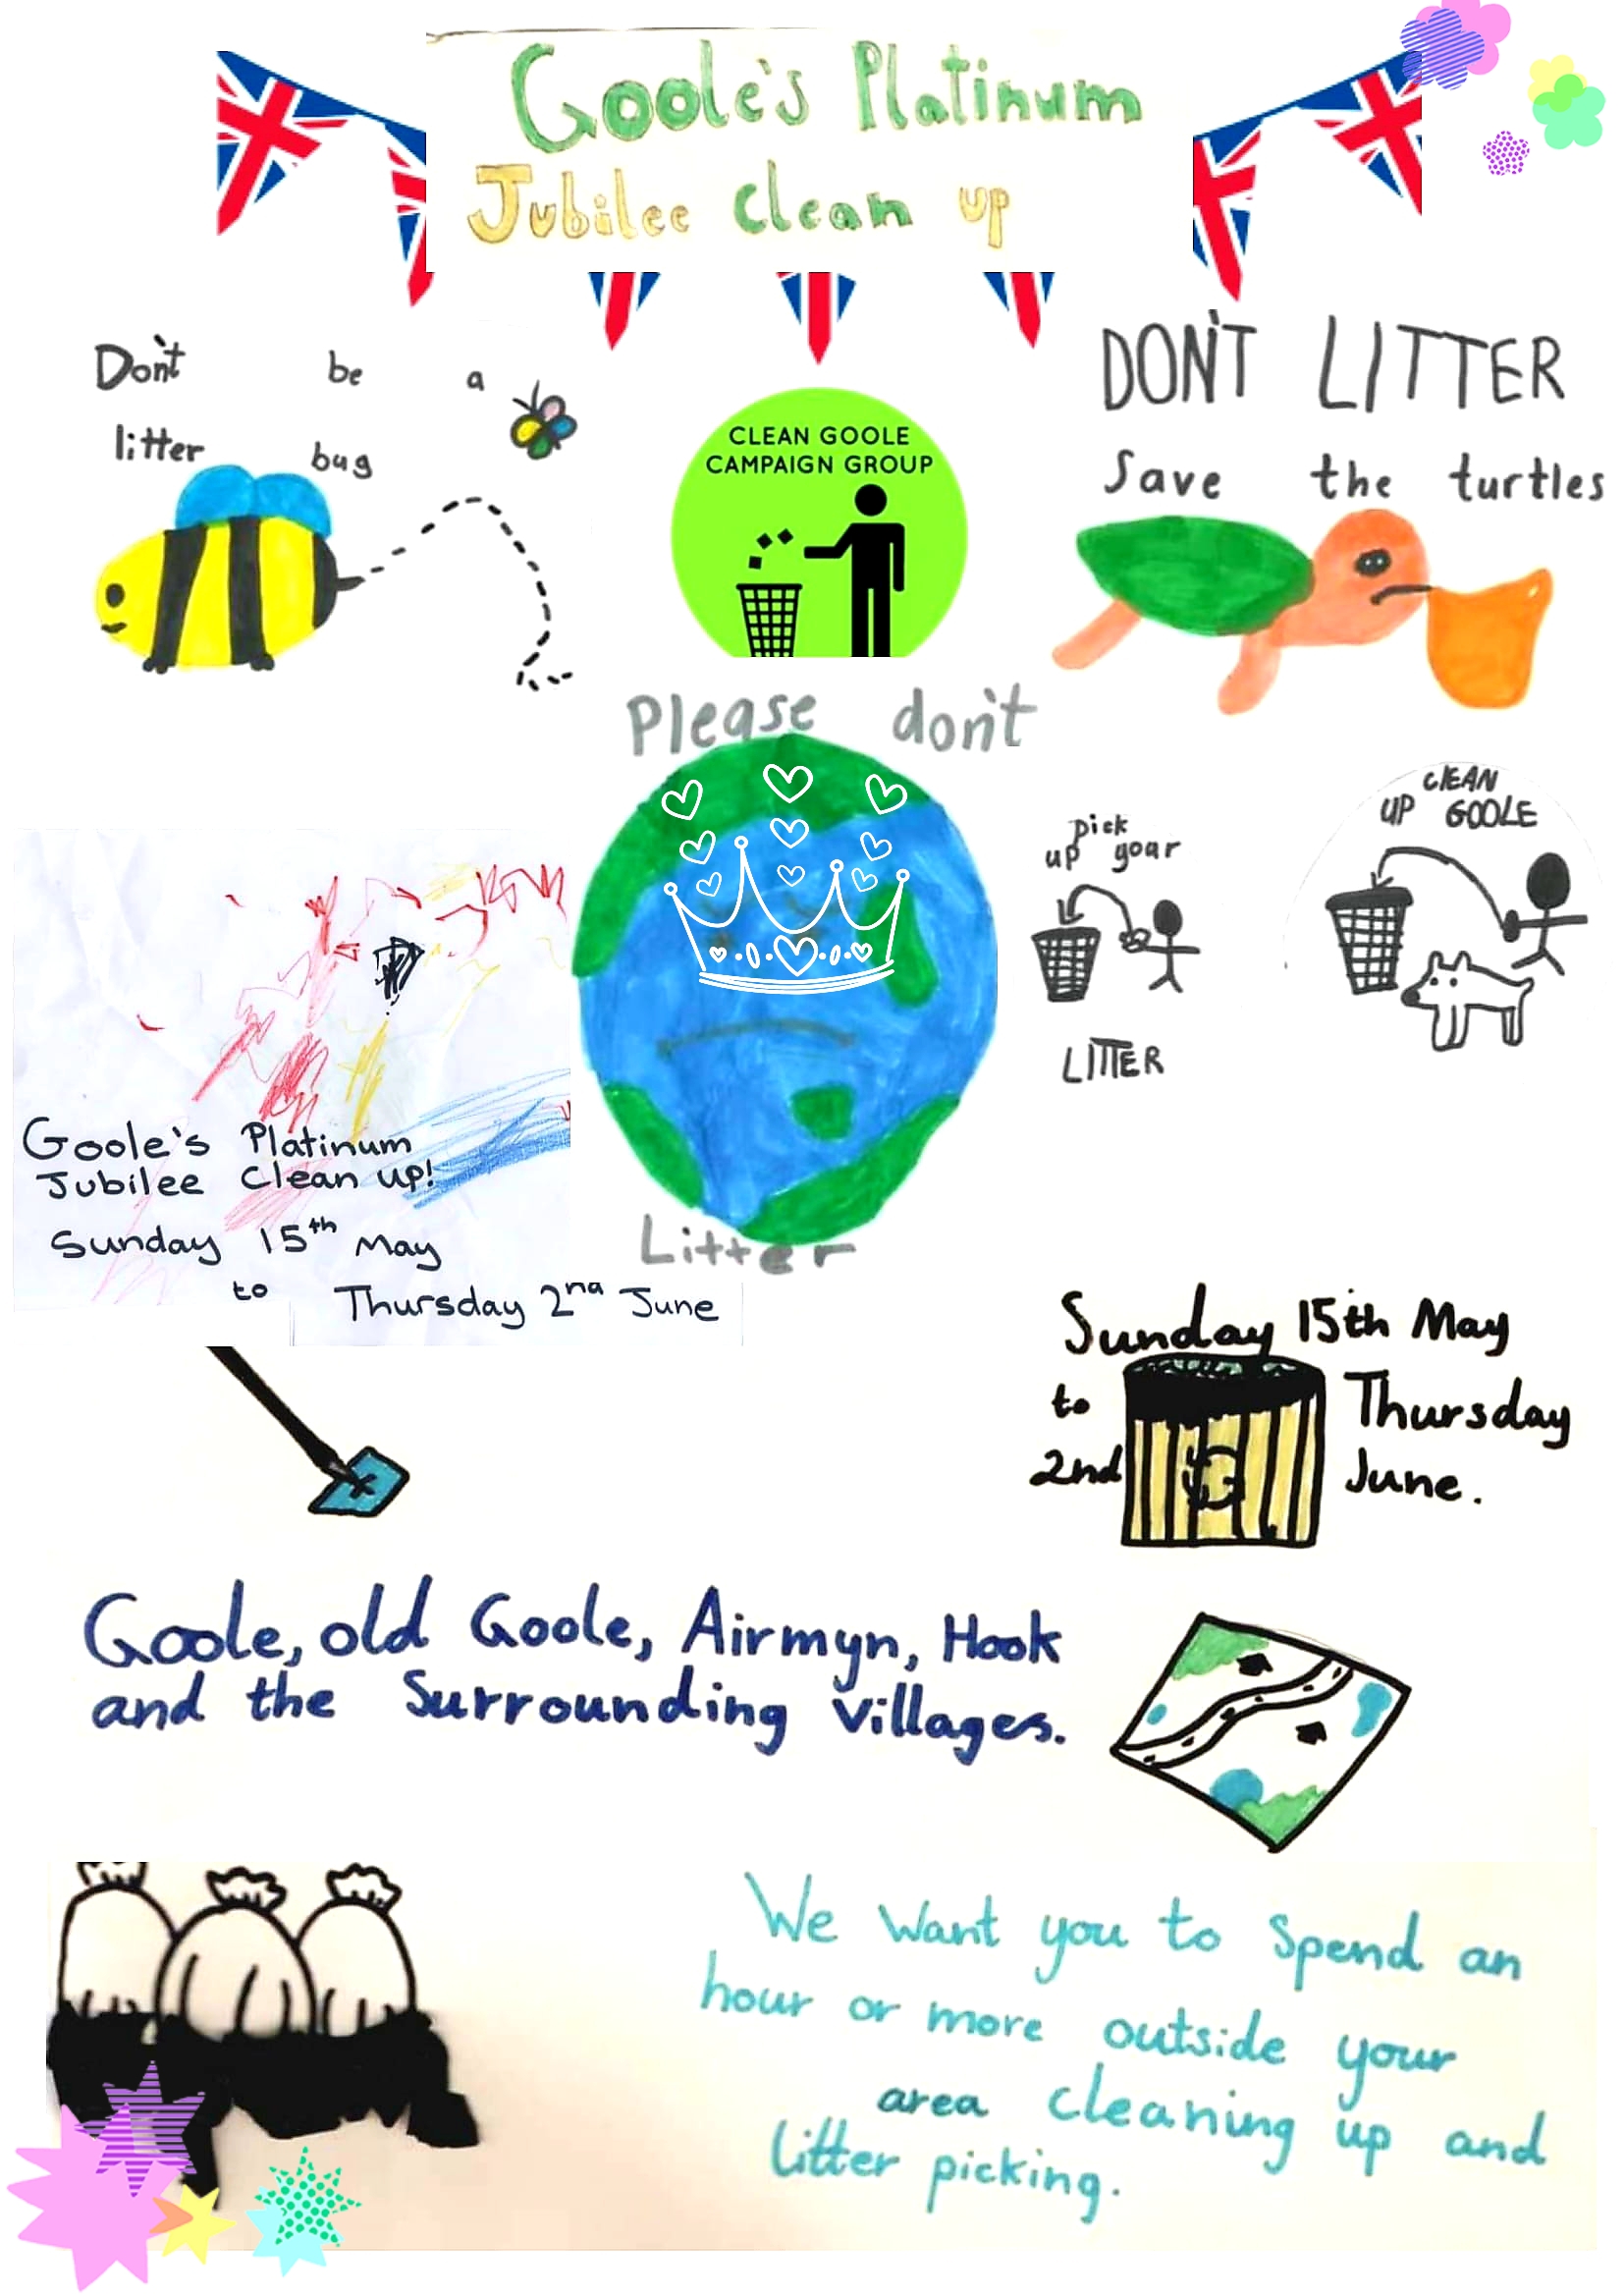 Goole's Platinum
Jubilee clean up
Don't be a
litter bug
CLEAN GOOLE
CAMPAIGN GROUP
DON'T LITTER
Save the turtles
Please don't
Litter
pick
up your
LITTER
ClEAN
UP GOOLE
Goole's Platinum
Jubilee Clean up!
Sunday 15th May
to
Thursday 2nd June
Sunday 15th May
to Thursday
2nd June.
Goole, old Goole, Airmyn, Hook
and the Surrounding Villages.
We want you to Spend an
hour or more outside your
area cleaning up and
litter picking.